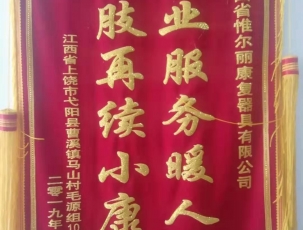 省惟尔丽康复器具有限公司
业服务暖人
肢再续小康
江西省上饶市弋阳县曹溪镇马山村毛源组10
二零一九年